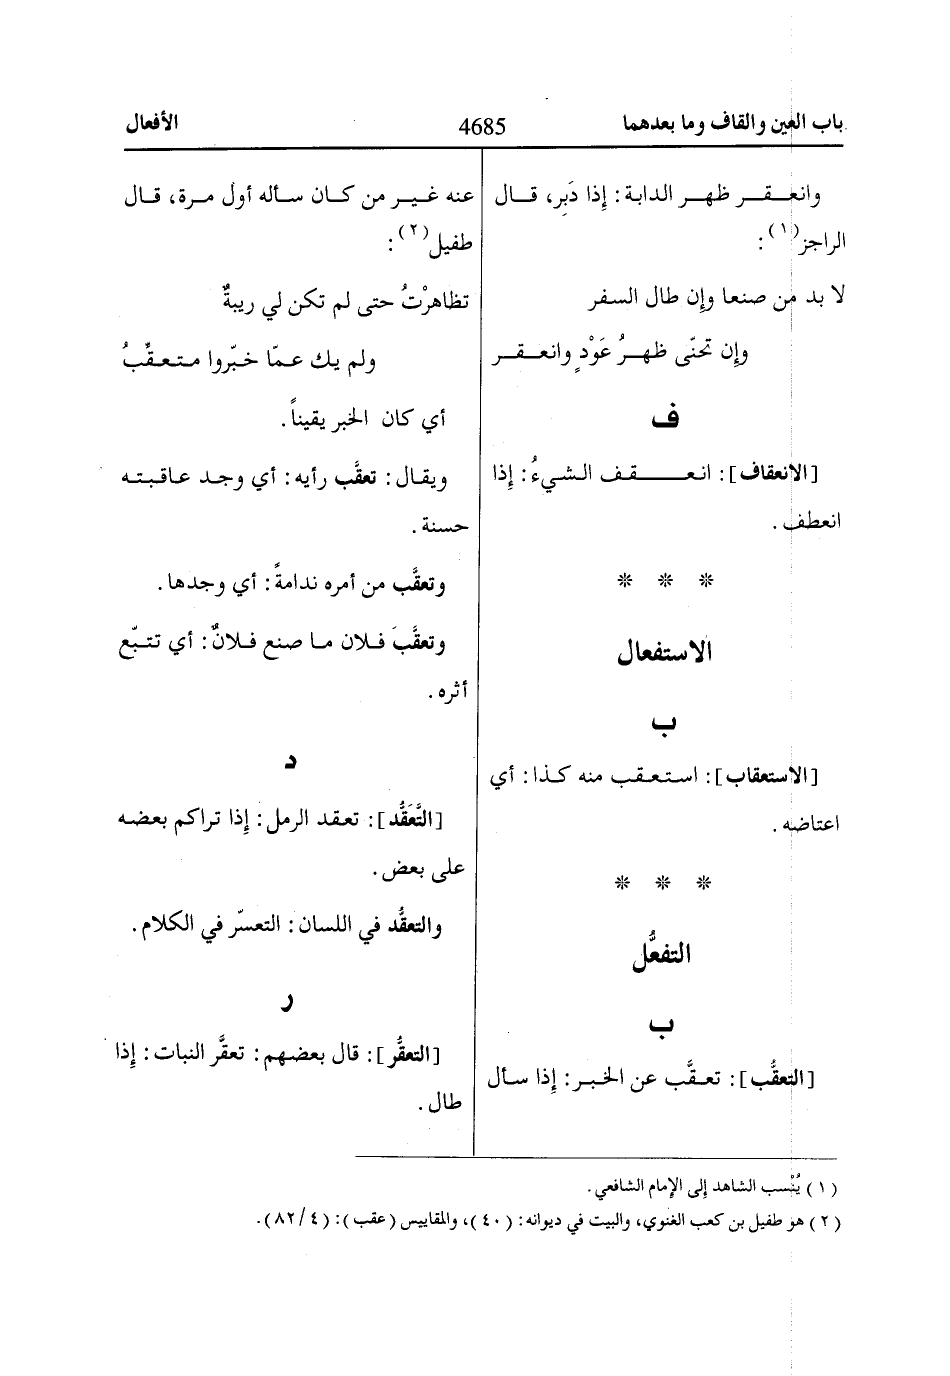 باب العين والقاف وما بعدهما 4685 الأفعال
وانعـقـر ظهـر الدابة: إِذا دَبِر، قـال
الراجز(١):
لا بد من صنعا وإِن طال السفر
وإِن تحنّى ظهـرُ عَوْدٍ وانعـقـر
ف
[الانعقاف]: انعـقـف الشيءُ: إِذا
انعطف.
* * *
الاستفعال
ب
[الاستعقاب]: استعقب منه كذا: أي
اعتاضه.
* * *
التفعُّل
ب
[التعقُّب]: تعقَّب عن الخبر: إِذا سأل
عنه غير من كان سأله أول مرة، قال
طفيل(٢):
تظاهرْتُ حتى لم تكن لي ريبةٌ
ولم يك عمّا خبّروا متعقّبُ
أي كان الخبر يقيناً.
ويقال: تعقَّب رأيه: أي وجد عاقبته
حسنة.
وتعقَّب من أمره ندامةً: أي وجدها.
وتعقَّبَ فلان ما صنع فلانٌ: أي تتبّع
أثره.
د
[التَّعَقُّد]: تعقد الرمل: إِذا تراكم بعضه
على بعض.
والتعقُّد في اللسان: التعسّر في الكلام.
ر
[التعقُّر]: قال بعضهم: تعقَّر النبات: إِذا
طال.
(١) يُنْسب الشاهد إِلى الإمام الشافعي.
(٢) هو طفيل بن كعب الغنوي، والبيت في ديوانه: (٤٠)، والمقاييس (عقب): (٤/٨٢).